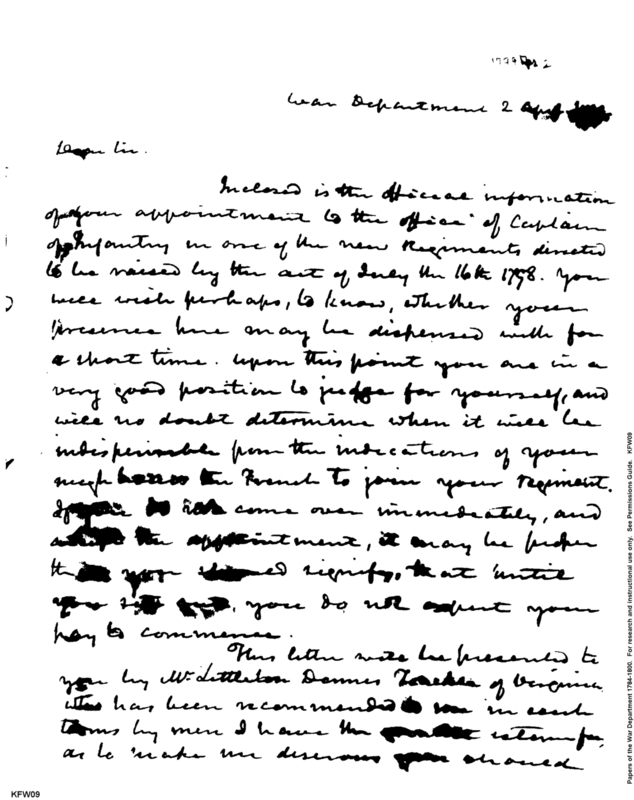 War Department 2
Dear Sir.
Inclosed is the official information
of your appointment to the office of Captain
of Infantry in one of the new Regiments directed
to be raised by the act of July the 16th 1798. You
will wish perhaps, to know, whether your
presence here may be dispensed with for
a short time. Upon this point you are in a
very good position to judge for yourself, and
will no doubt determine when it will be
indispensible from the indications of your
the French to join your Regiment.
come over immediately, and
the appointment, it may be proper
you signify, that until
you, you do not expect your
pay to commence.
This letter will be presented to
you by Mr. Littleton Dennis of Virginia
who has been recommended to me in such
terms by men I have the
as to make me desirous should
KFW09
Papers of the War Department 1784-1800. For research and instructional use only. See Permissions Guide. KFW09